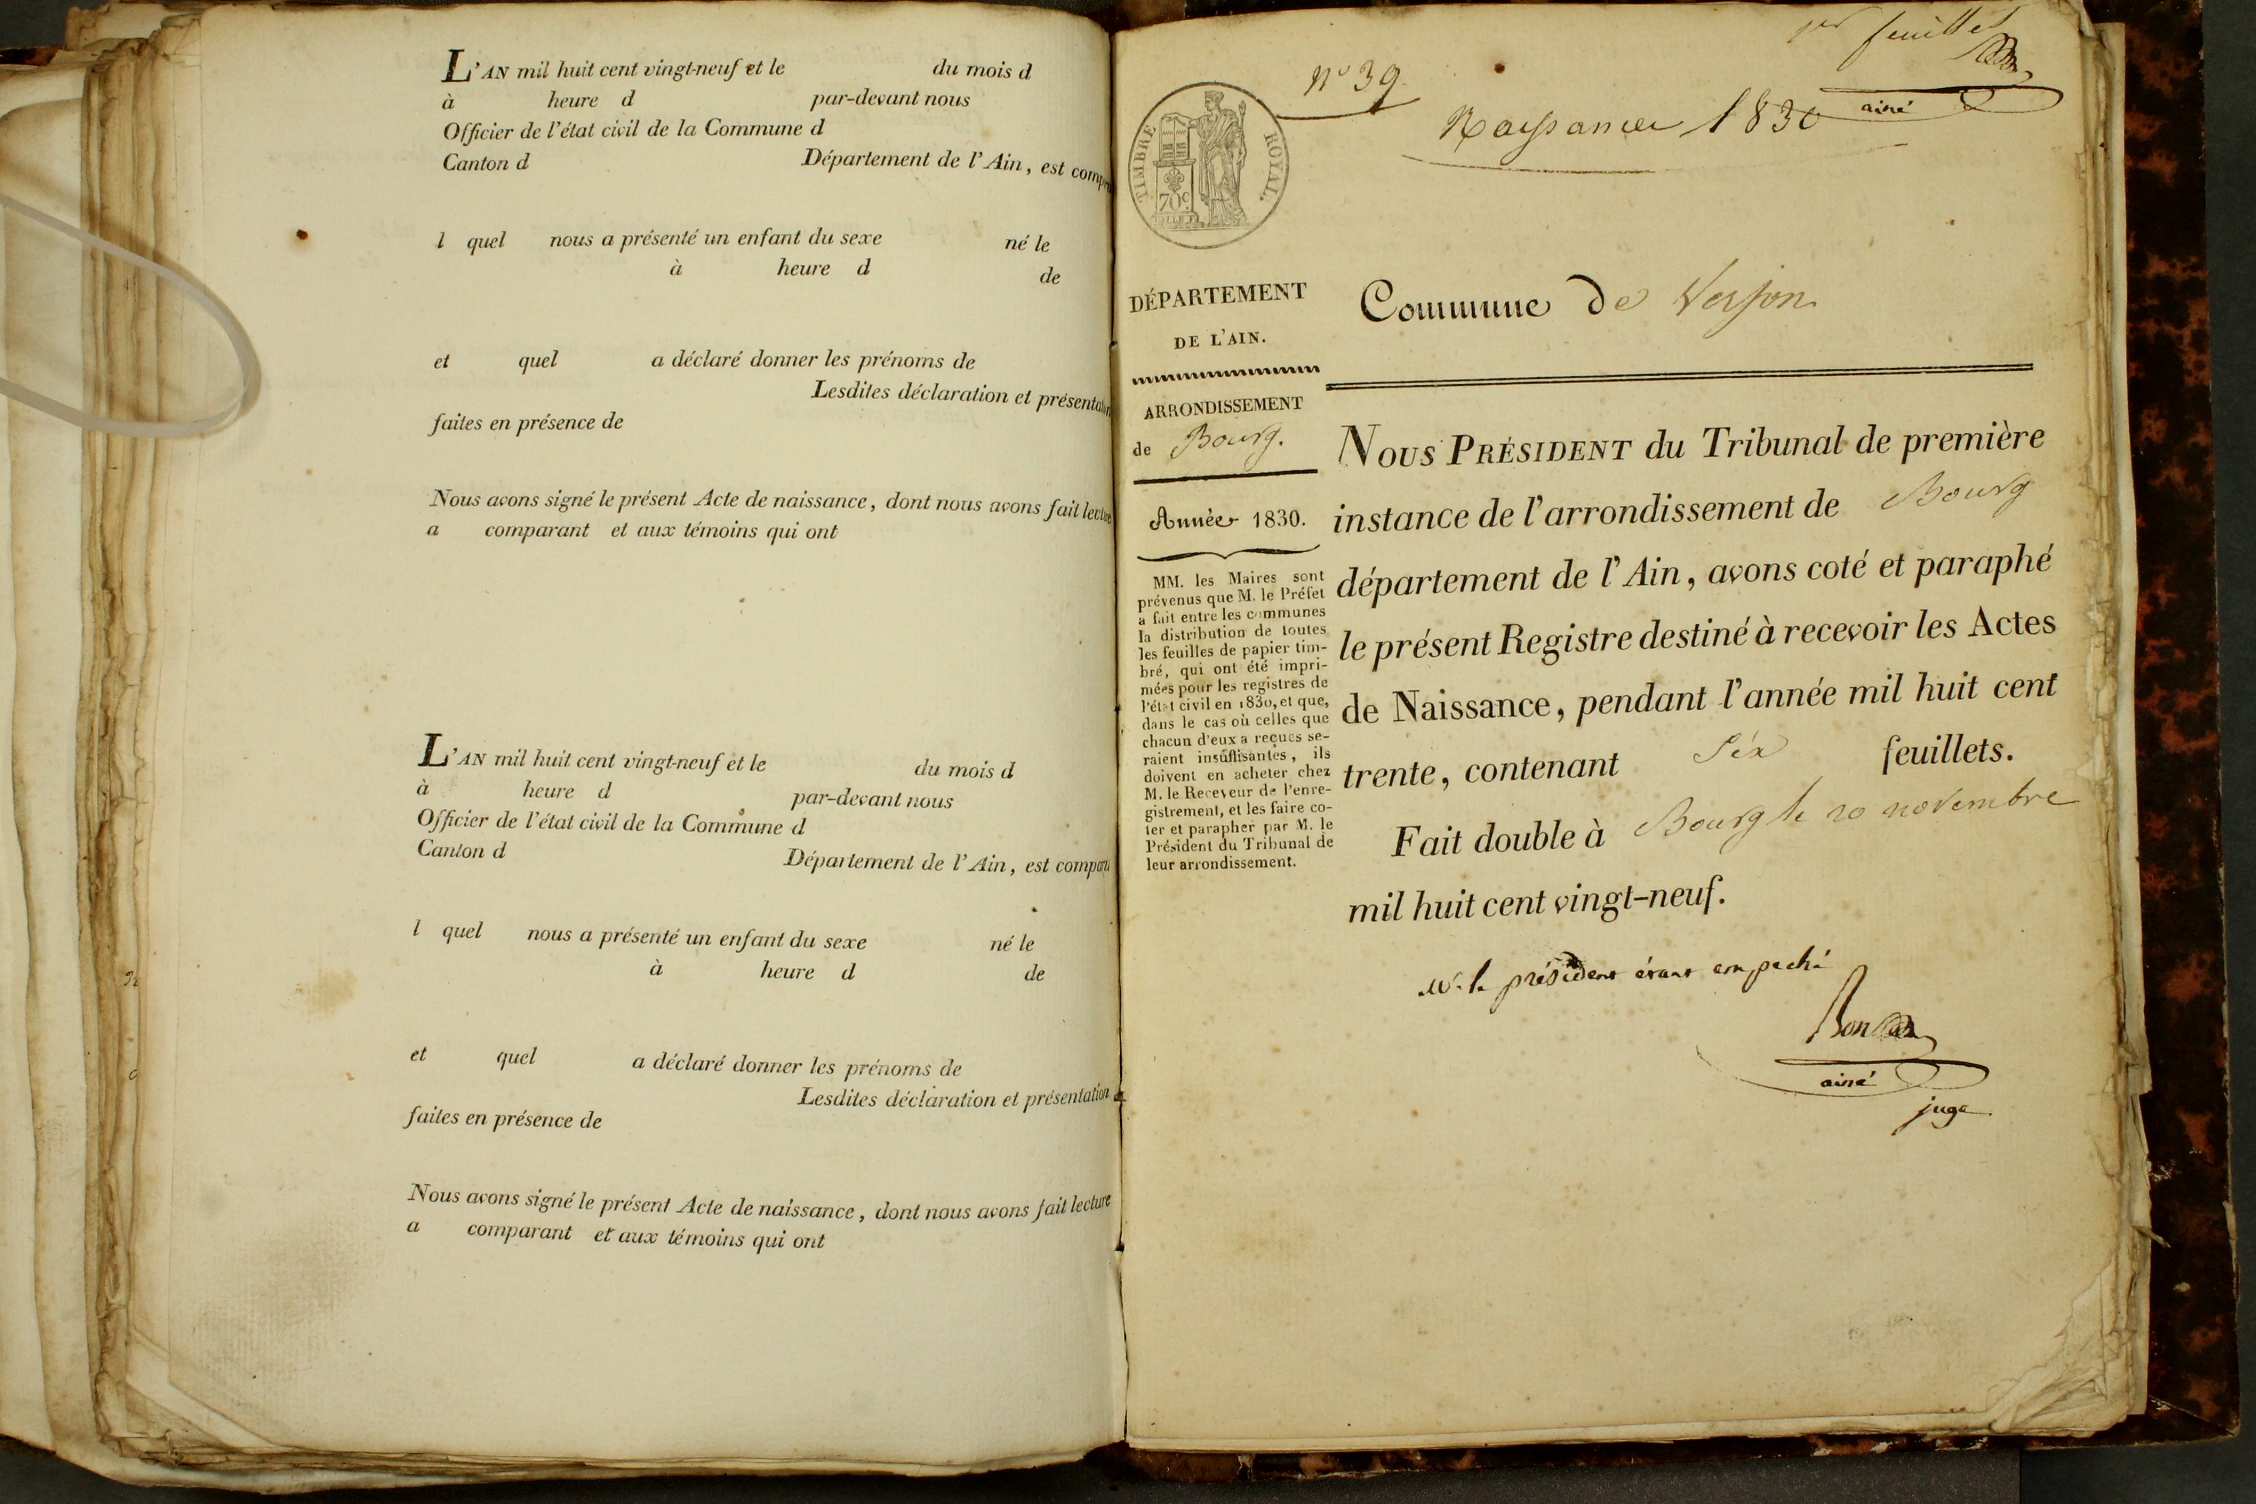 L'AN mil huit cent vingt-neuf et le du mois d
à heure d par-devant nous
Officier de l'état civil de la Commune d
Canton d Département de l'Ain, est comparu
l quel nous a présenté un enfant du sexe né le
à heure d de
et quel a déclaré donner les prénoms de
Lesdites déclaration et présentation
faites en présence de
Nous avons signé le présent Acte de naissance, dont nous avons fait lecture
a comparant et aux témoins qui ont
L'AN mil huit cent vingt-neuf et le du mois d
à heure d par-devant nous
Officier de l'état civil de la Commune d
Canton d Département de l'Ain, est comparu
l quel nous a présenté un enfant du sexe né le
à heure d de
et quel a déclaré donner les prénoms de
Lesdites déclaration et présentation
faites en présence de
Nous avons signé le présent Acte de naissance, dont nous avons fait lecture
a comparant et aux témoins qui ont
1er feuillet
ainé
N° 39
Naissances 1830
TIMBRE ROYAL.
70c.
DÉPARTEMENT
DE L'AIN.
ARRONDISSEMENT
de Bourg.
Année 1830.
MM. les Maires sont
prévenus que M. le Préfet
a fait entre les communes
la distribution de toutes
les feuilles de papier tim-
bré, qui ont été impri-
mées pour les registres de
l'état civil en 1830, et que,
dans le cas où celles que
chacun d'eux a reçues se-
raient insuffisantes, ils
doivent en acheter chez
M. le Receveur de l'enre-
gistrement, et les faire co-
ter et parapher par M. le
Président du Tribunal de
leur arrondissement.
Commune de Verjon
NOUS PRÉSIDENT du Tribunal de première
instance de l'arrondissement de Bourg
département de l'Ain, avons coté et paraphé
le présent Registre destiné à recevoir les Actes
de Naissance, pendant l'année mil huit cent
trente, contenant Six feuillets.
Fait double à Bourg le 20 novembre
mil huit cent vingt-neuf.
Mr. le président étant empeché
ainé
juge